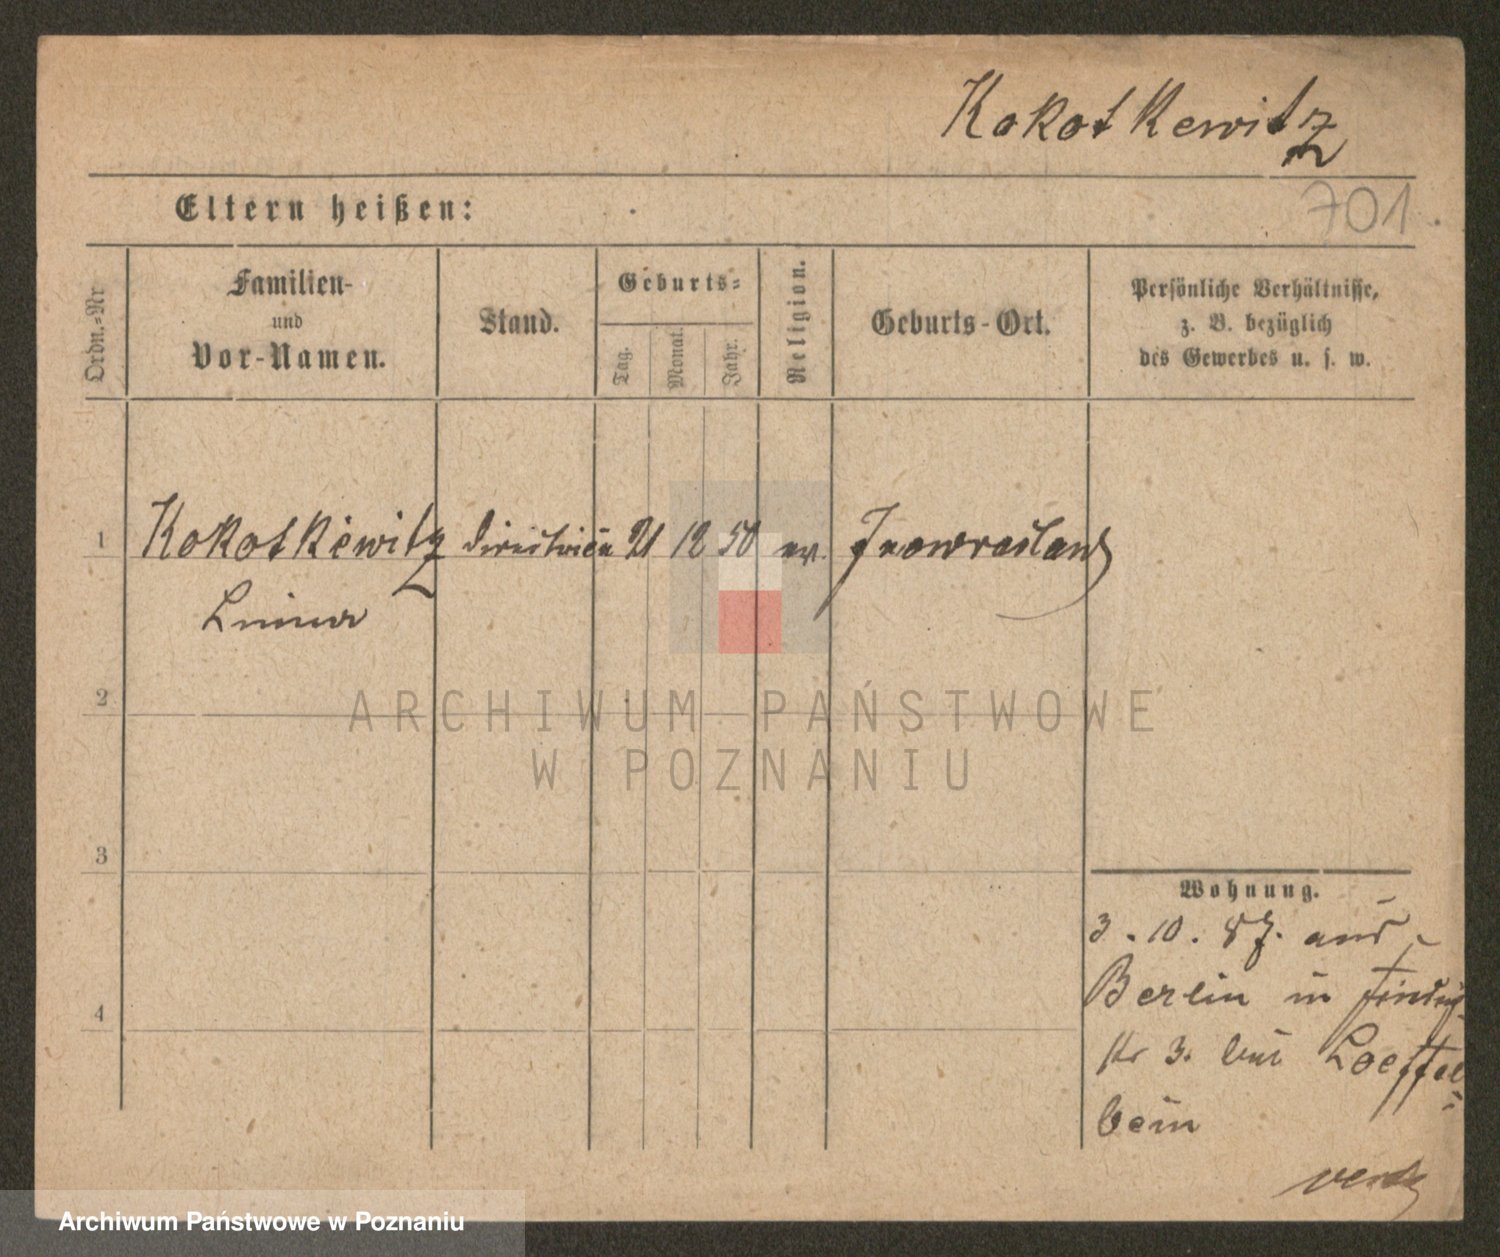 Kokotkewitz
701.
Eltern heißen:
Ordn.-Nr
Familien-
und
Vor-Namen.
Stand.
Geburts-
Tag.
Monat.
Jahr.
Religion.
Geburts-Ort.
Persönliche Verhältnisse,
z. B. bezüglich
des Gewerbes u. s. w.
1 Kokotkewitz Directrice 21 12 50 ev. Inowraclaw
2
ARCHIWUM PAŃSTWOWE
W POZNANIU
3
Wohnung.
3. 10. 87. aus
Berlin in
4
str 3. bei Loeffel-
bein
Archiwum Państwowe w Poznaniu